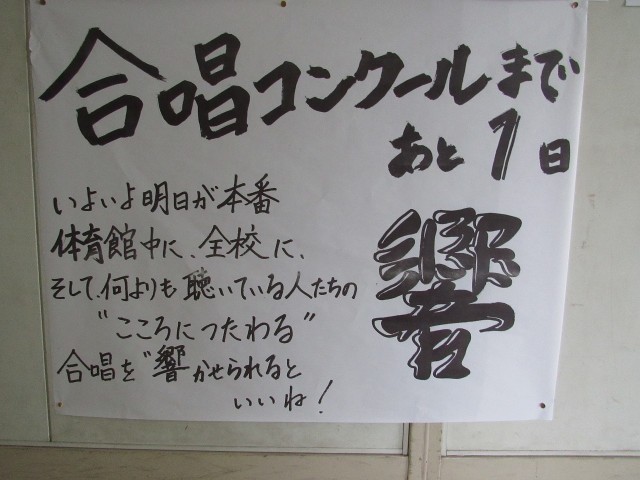 合唱コンクールまで
あと1日
響
いよいよ明日が本番
体育館中に、全校に、
そして、何よりも聴いている人たちの
"こころにつたわる"
合唱を"響かせられると
いいね!